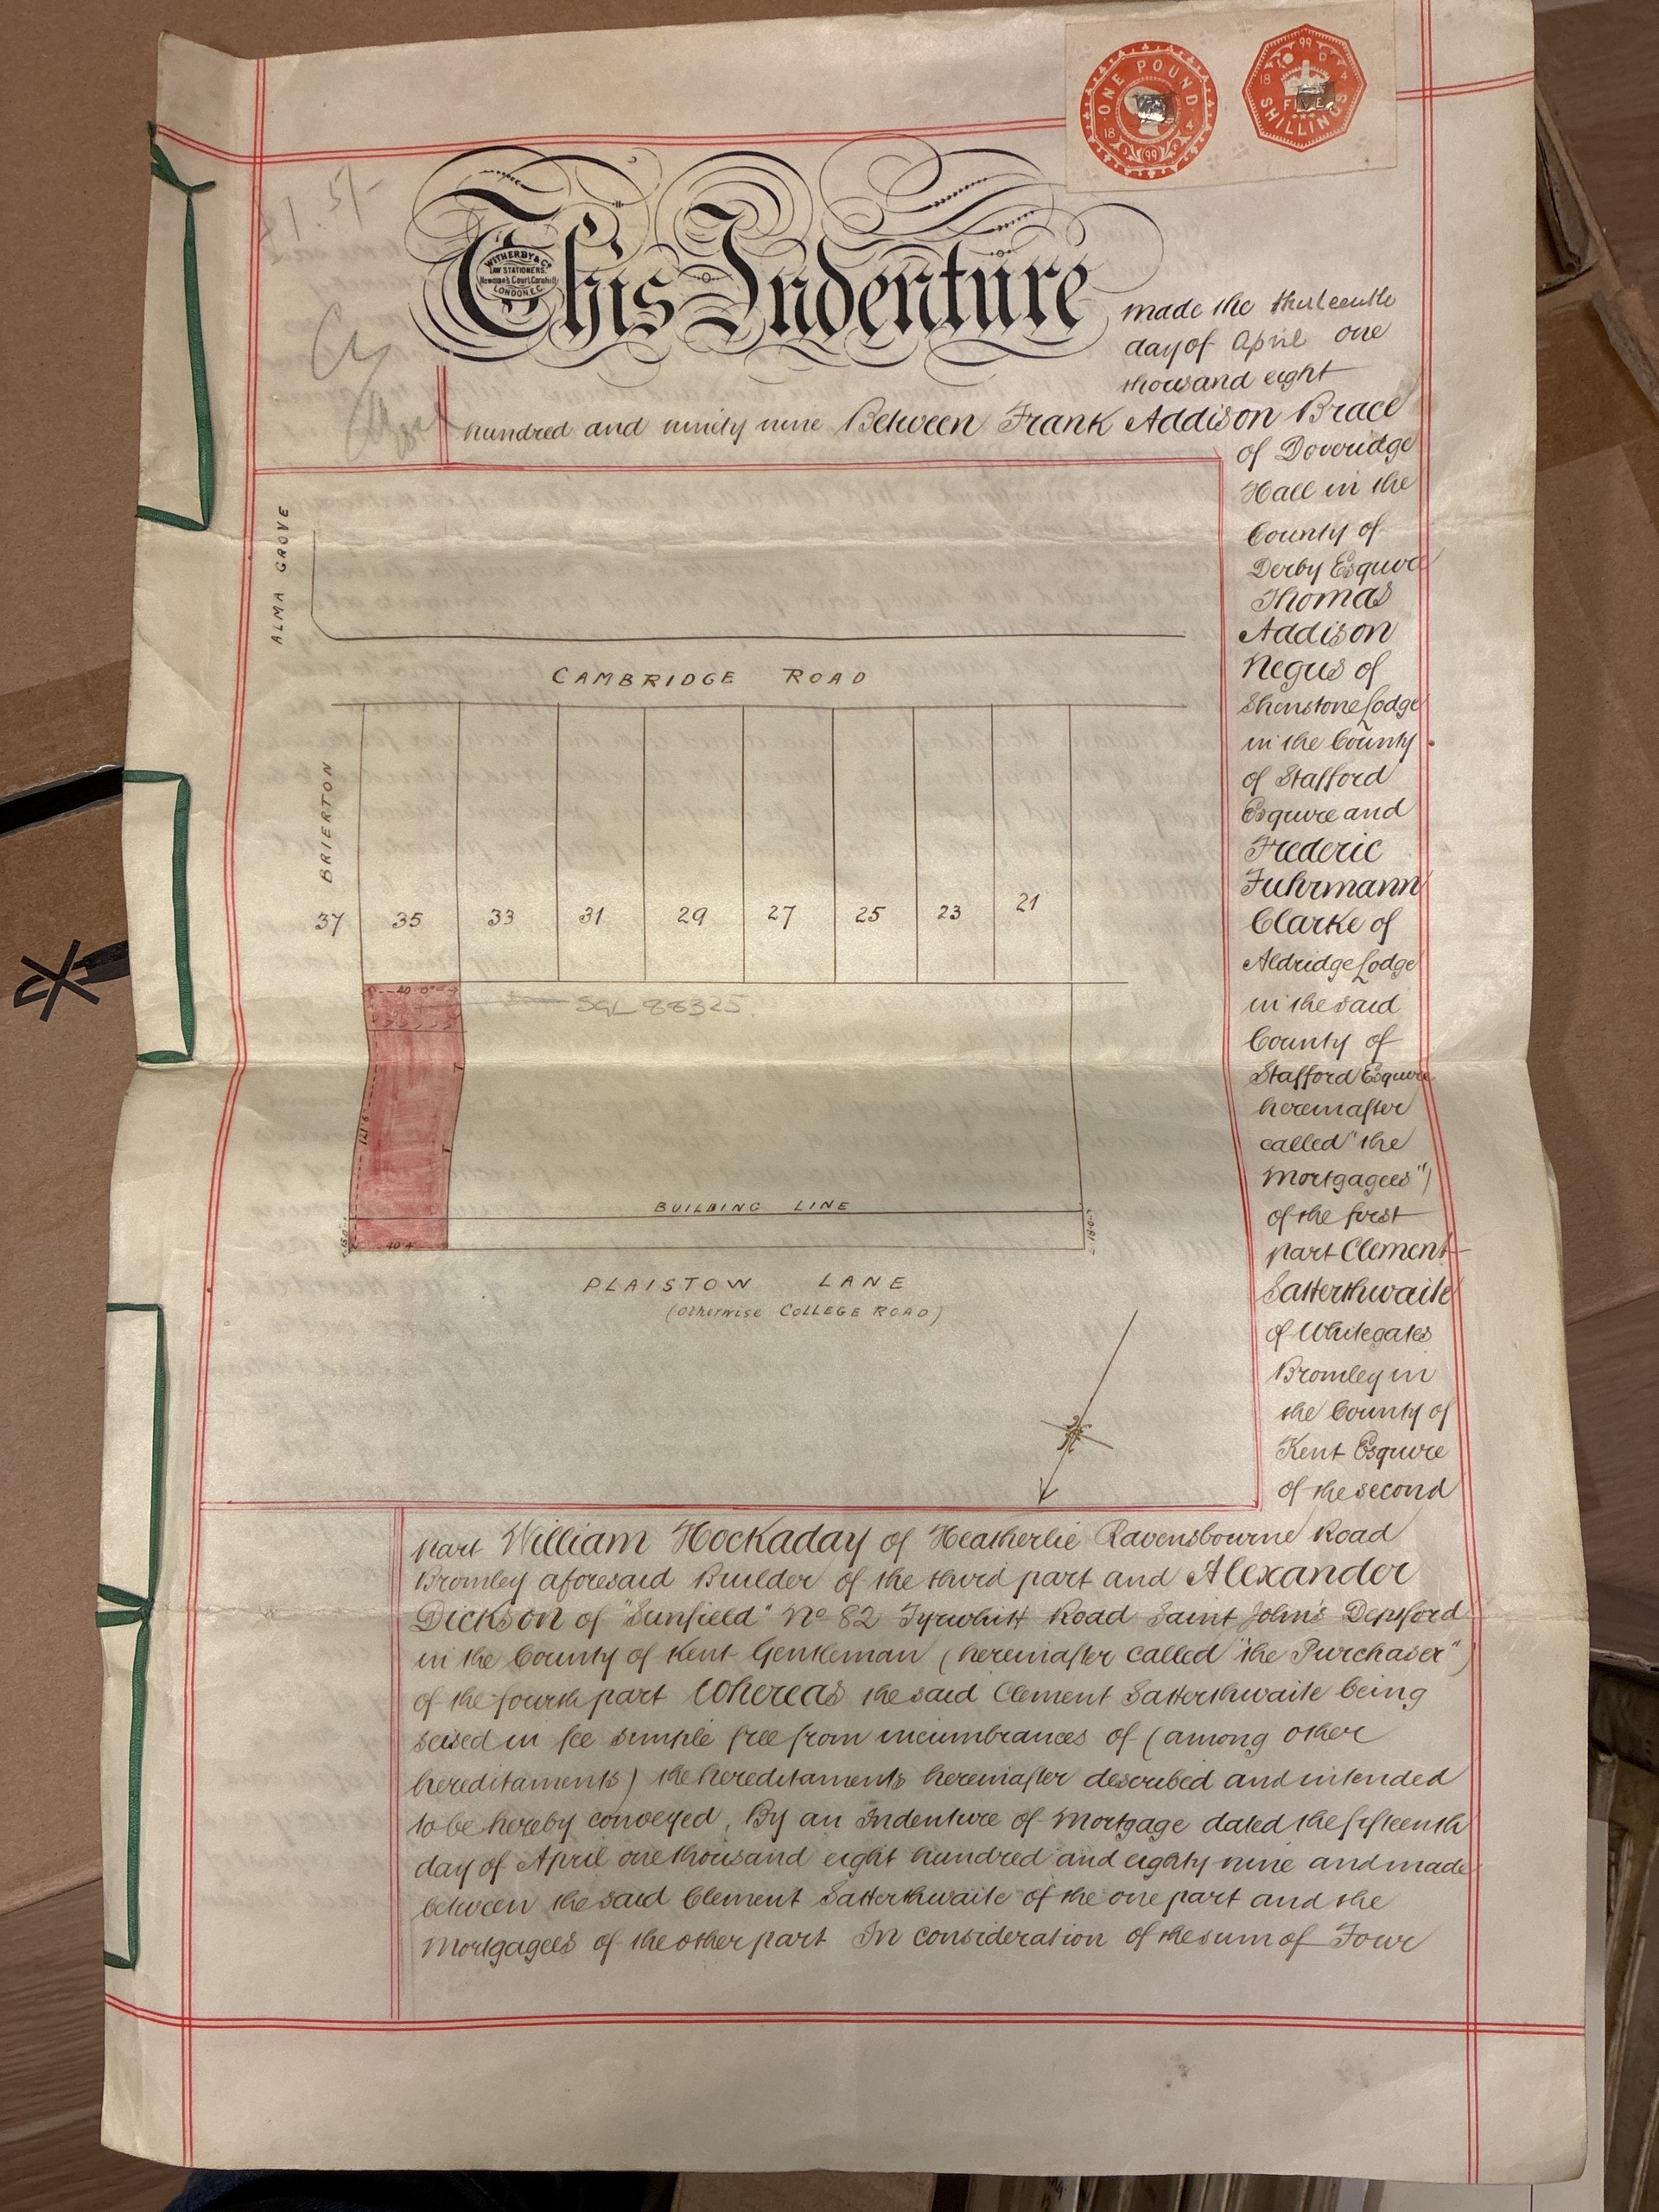 ONE POUND
18 4
99
99
18 D 4
FIVE
SHILLINGS
£1. 5/-
This Indenture
WITHERBY & Co
LAW STATIONERS.
Newman's Court Cornhill
LONDON. E.C.
made the thirteenth
day of April one
thousand eight
hundred and ninety nine Between Frank Addison Brace
of Doveridge
Hall in the
County of
Derby Esquire
Thomas
Addison
Negus of
Shenstone Lodge
in the County
of Stafford
Esquire and
Frederic
Fuhrmann
Clarke of
Aldridge Lodge
in the said
County of
Stafford Esquire
hereinafter
called "the
Mortgagees")
of the first
part Clement
Satterthwaite
of Whitegates
Bromley in
the County of
Kent Esquire
of the second
ALMA GROVE
CAMBRIDGE ROAD
BRIERTON
37 35 33 31 29 27 25 23 21
40.0"
SGL 88325.
121.6"
BUILDING LINE
18.0"
40.4"
18.0"
PLAISTOW LANE
(Otherwise COLLEGE ROAD)
part William Hockaday of Heatherlie Ravensbourne Road
Bromley aforesaid Builder of the third part and Alexander
Dickson of "Sunfield" No 82 Tyrwhitt Road Saint John's Deptford
in the County of Kent Gentleman (hereinafter called "the Purchaser")
of the fourth part Whereas the said Clement Satterthwaite being
seised in fee simple free from incumbrances of (among other
hereditaments) the hereditaments hereinafter described and intended
to be hereby conveyed, By an Indenture of Mortgage dated the fifteenth
day of April one thousand eight hundred and eighty nine and made
between the said Clement Satterthwaite of the one part and the
Mortgagees of the other part In consideration of the sum of Four